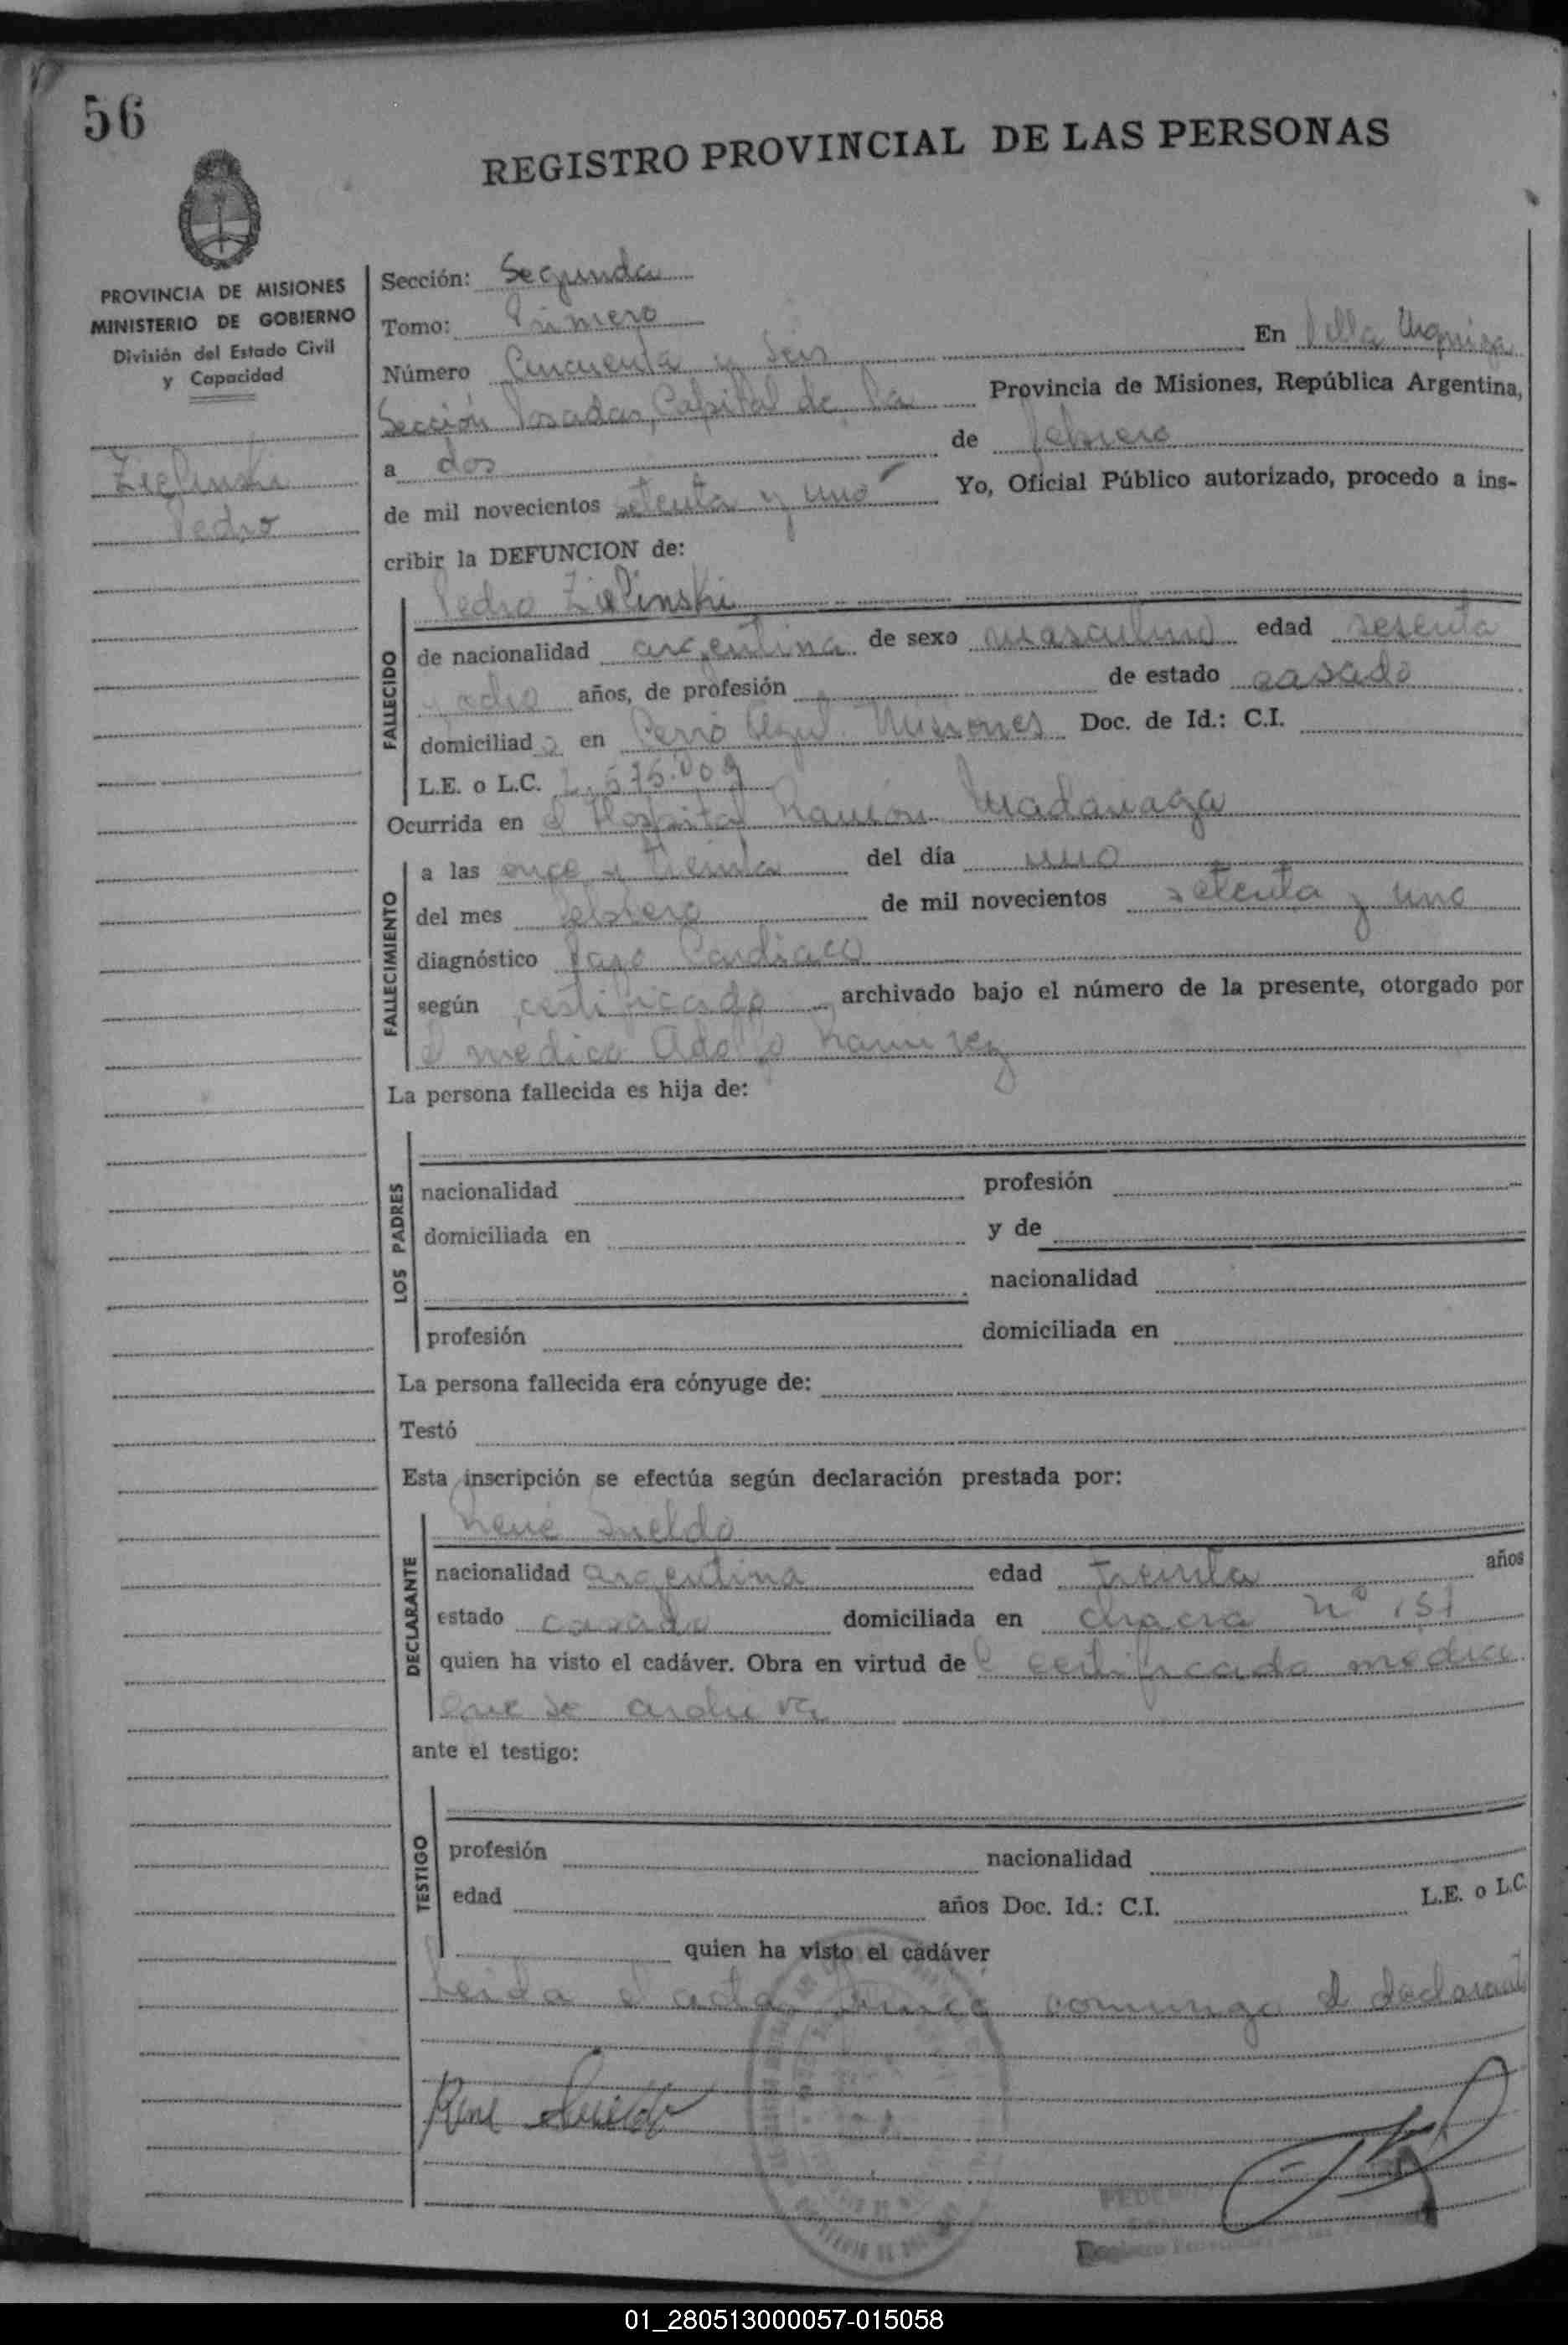 56
REGISTRO PROVINCIAL DE LAS PERSONAS
PROVINCIA DE MISIONES
MINISTERIO DE GOBIERNO
División del Estado Civil
y Capacidad
Zielinski
Pedro
Sección: Segunda
Tomo: Primero
Número Cincuenta y Seis En Villa Urquiza
Sección Posadas, Capital de la Provincia de Misiones, República Argentina,
a dos de febrero
de mil novecientos setenta y uno Yo, Oficial Público autorizado, procedo a ins-
cribir la DEFUNCION de:
FALLECIDO
Pedro Zielinski
de nacionalidad argentina de sexo masculino edad sesenta
y ocho años, de profesión de estado casado
domiciliado en Cerro Azul. Misiones Doc. de Id.: C.I.
L.E. o L.C.
Ocurrida en el Hospital Ramón Madariaga
FALLECIMIENTO
a las once y treinta del día uno
del mes febrero de mil novecientos setenta y uno
diagnóstico Paro Cardiaco
según certificado archivado bajo el número de la presente, otorgado por
el medico Adolfo Ramirez
La persona fallecida es hija de:
LOS PADRES
nacionalidad profesión
domiciliada en y de
nacionalidad
profesión domiciliada en
La persona fallecida era cónyuge de:
Testó
Esta inscripción se efectúa según declaración prestada por:
DECLARANTE
René
nacionalidad argentina edad treinta años
estado casado domiciliada en chacra nº 151
quien ha visto el cadáver. Obra en virtud de l certificado medico
que se archiva
ante el testigo:
TESTIGO
profesión nacionalidad
edad años Doc. Id.: C.I. L.E. o L.C.
quien ha visto el cadáver
Leida el acta, firma conmigo el declarante
René
01_280513000057-015058